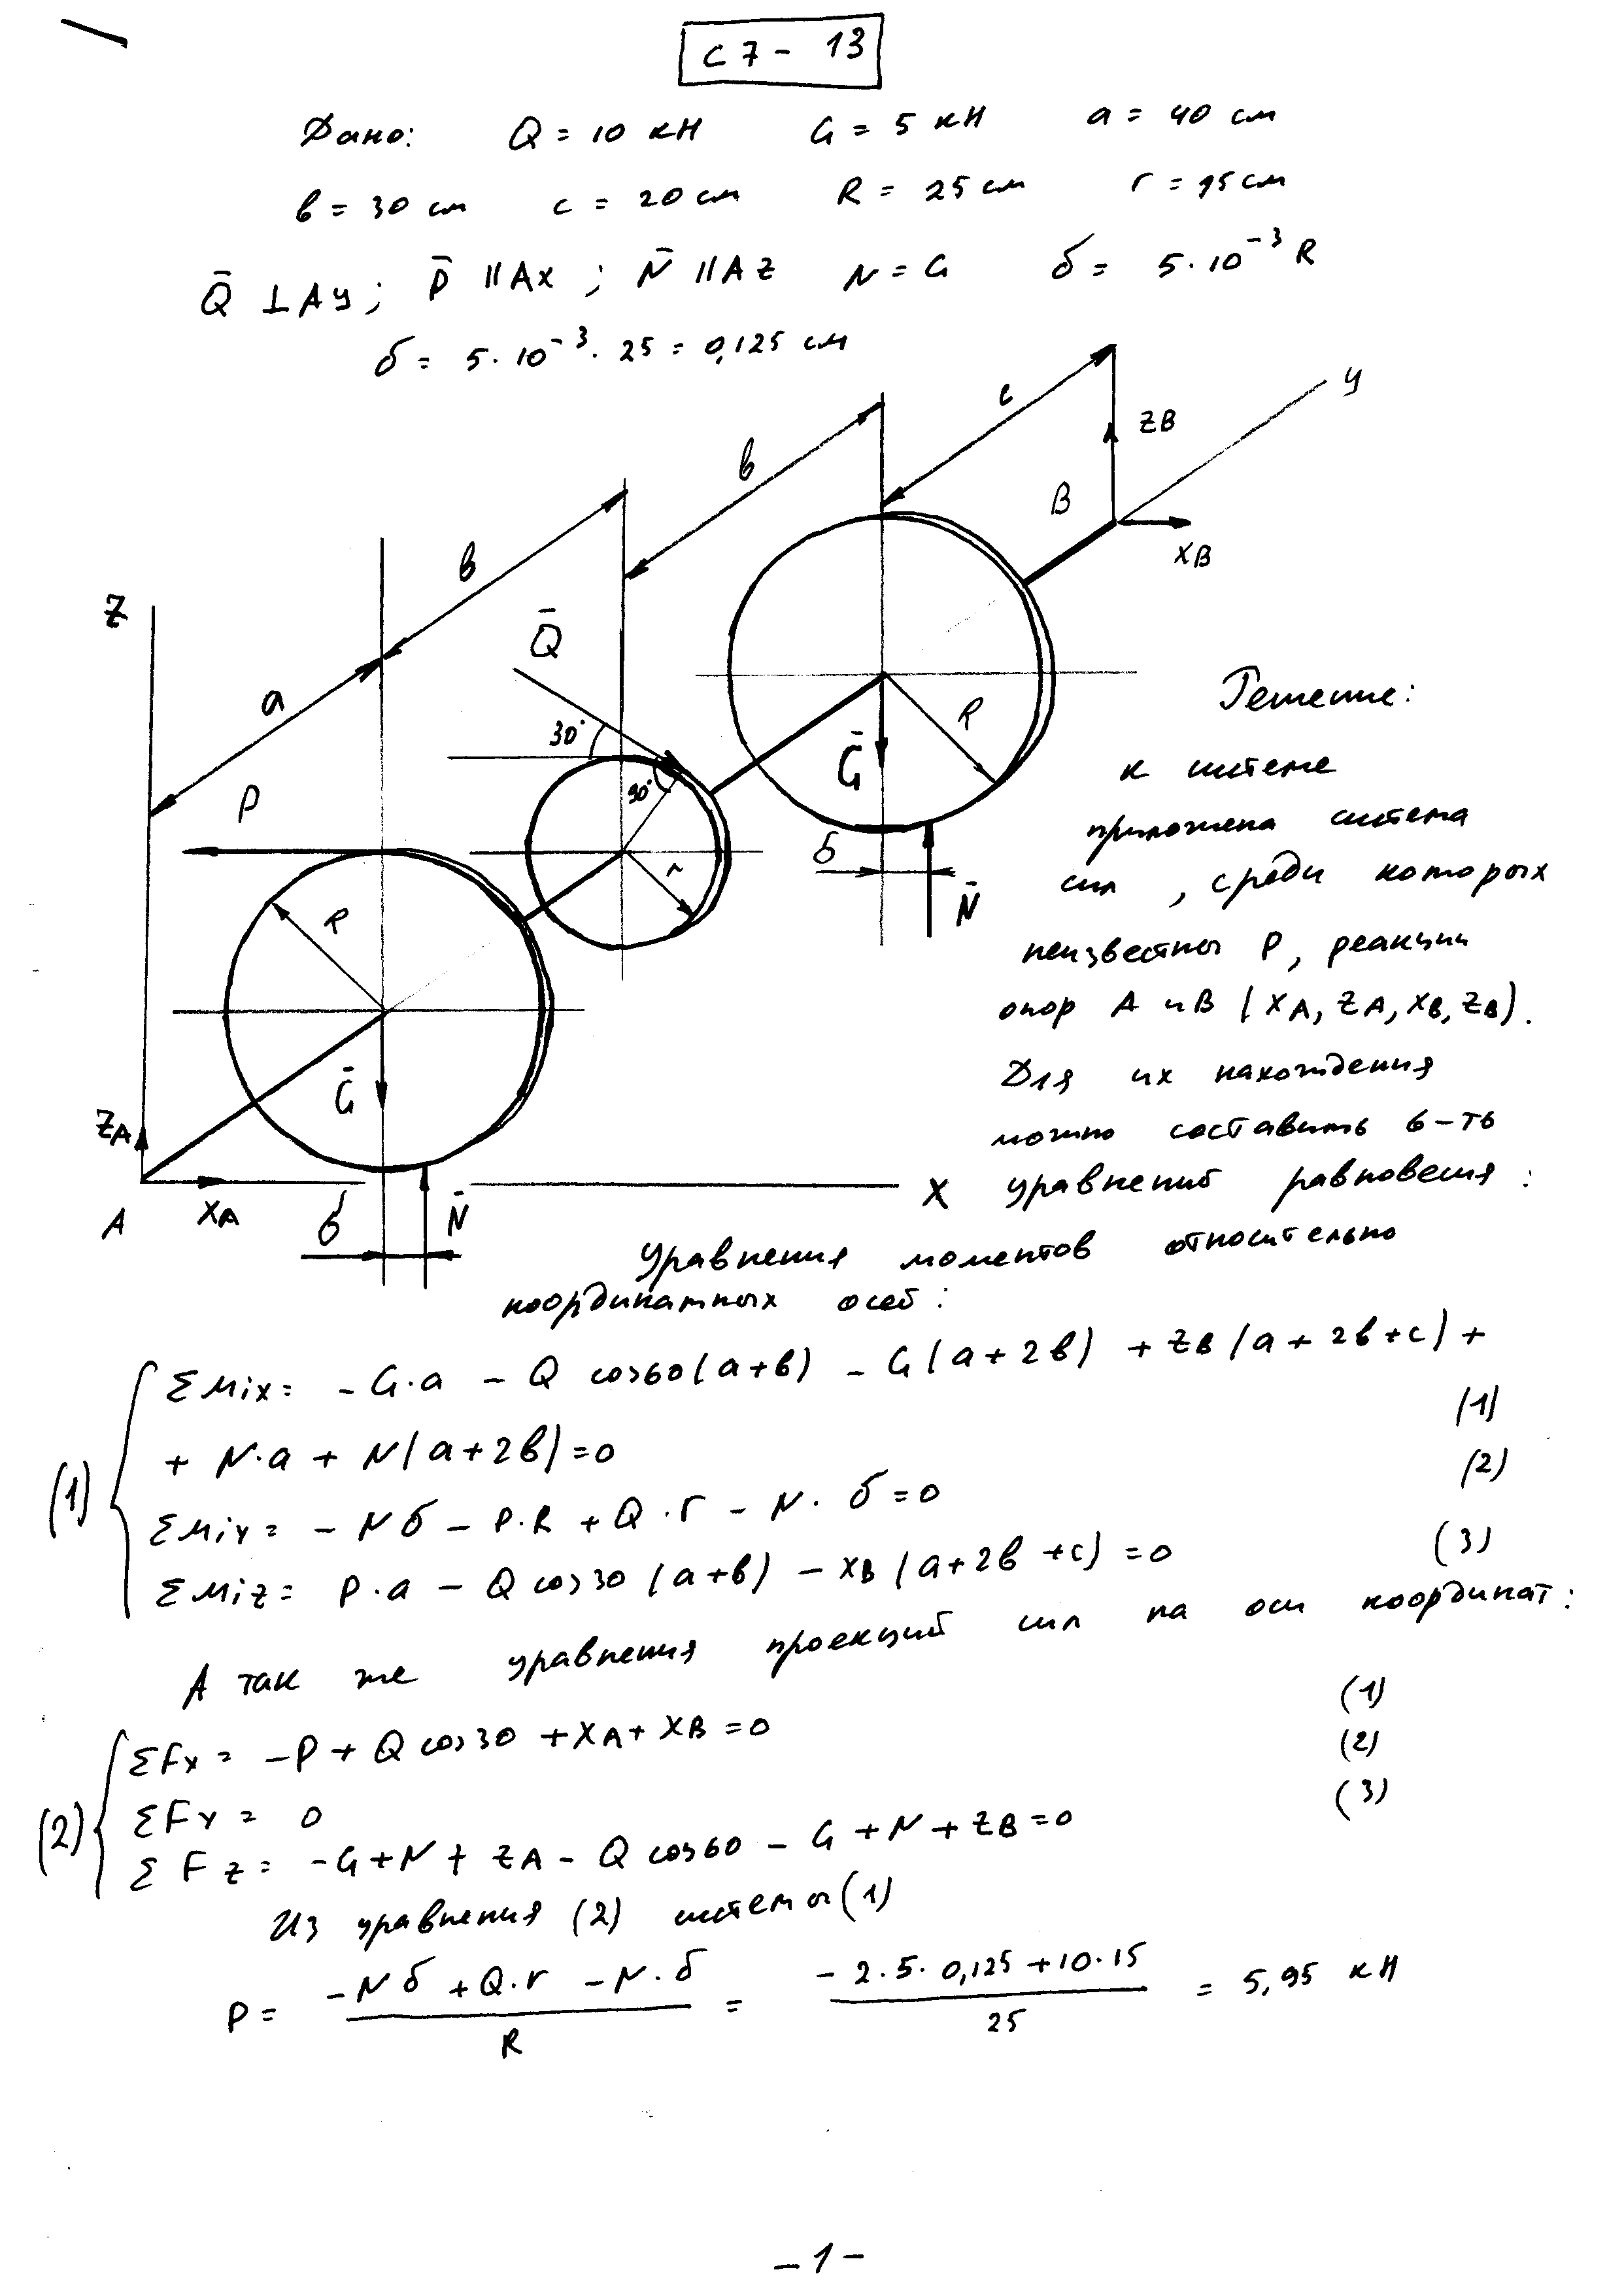 С7 - 13
Дано: Q = 10 кН G = 5 кН a = 40 см
в = 30 см c = 20 см R = 25 см r = 15 см
Q̄ ⊥ Ay; P̄ ∥ Ax; N̄ ∥ Az N = G δ = 5·10⁻³ R
δ = 5·10⁻³·25 = 0,125 см
c
y
zB
в
B
xB
в
z
Q̄
a
30°
R
Решение:
Ḡ
к системе
P
90°
приложена система
r
δ
N̄
сил, среди которых
R
неизвестны P, реакции
опор A и B (xA, zA, xB, zB).
Ḡ
Для их нахождения
zA
можно составить 6-ть
x
уравнений равновесия:
A
xA
δ
N̄
Уравнения моментов относительно
координатных осей:
(1)
ΣMix = -G·a - Q cos60(a+в) - G(a+2в) + zB(a+2в+c) +
+ N·a + N(a+2в)=0 (1)
ΣMiy = -Nδ - P·R + Q·r - N·δ=0 (2)
ΣMiz = P·a - Q cos30(a+в) - xB(a+2в+c)=0 (3)
А так же уравнения проекций сил на оси координат:
(2)
ΣFx = -P + Q cos30 + xA + xB = 0 (1)
ΣFy = 0 (2)
ΣFz = -G+N+zA - Q cos60 - G+N+zB=0 (3)
Из уравнения (2) системы (1)
P = (-Nδ + Q·r - N·δ) / R = (-2·5·0,125+10·15) / 25 = 5,95 кН
- 1 -